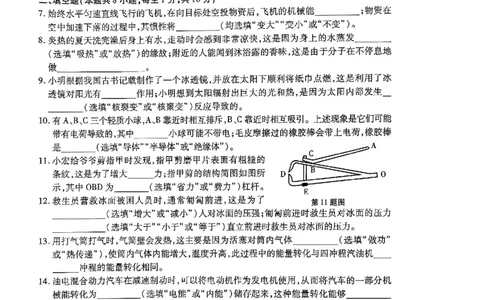 二、填空题(本题共8小题,每空1分,共16分)
7. 始终水平匀速直线飞行的飞机,在向目标处空投物资后,飞机的机械能______;物资在
空中加速下落的过程中,其惯性将______(均选填"变大""变小"或"不变")。
8. 炎热的夏天洗完澡后身上有水,走动时会感到非常凉快,这是因为身上的水蒸发______
(选填"吸热"或"放热")的缘故;附近的人能闻到沐浴露的香味,这是由于分子在不停息地
做______。
9. 小明根据我国古书记载制作了一个冰透镜,并放在太阳下顺利将纸巾点燃,这是利用了冰
透镜对阳光有______作用;小明想到太阳辐射出巨大的光和热,是因为太阳内部发生
______(选填"核裂变"或"核聚变")反应导致的。
10. 有A、B、C三个轻质小球,A、B靠近时相互排斥,B、C靠近时相互吸引。上述现象是它们可能
带有电荷导致的,其中______小球可能不带电;毛皮摩擦过的橡胶棒会带上电荷,橡胶棒
是______(选填"导体""半导体"或"绝缘体")。
11. 小宏给爷爷剪指甲时发现,指甲剪磨甲片表面有粗糙的
条纹,这是为了增大______力;指甲剪的结构简图如图所
示,其中OBD为______(选填"省力"或"费力")杠杆。
A
C
B
D
O
E
第11题图
12. 救生员营救冰面被困人员时,通常匍匐前进,这是为了
______(选填"增大"或"减小")人对冰面的压强;匍匐前进时救生员对冰面的压力
______(选填"大于""小于"或"等于")直立前进时救生员对冰面的压力。
13. 用打气筒打气时,气筒壁会发热,这主要是因为活塞对筒内气体______(选填"做功"
或"热传递"),使筒内气体内能增大,温度升高,此过程中的能量转化与四冲程汽油机
______冲程的能量转化相同。
14. 油电混合动力汽车在减速制动时,可以将电动机作为发电机使用,从而将汽车的一部分机
械能转化为______(选填"电能"或"内能")储存起来,这种能量转化能够______